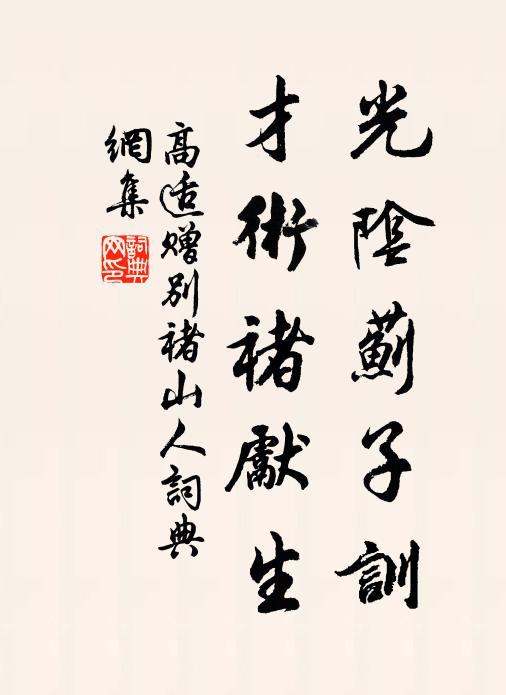 光陰薊子訓
才術褚獻生
高适赠别褚山人詞典
網集
詞典網印